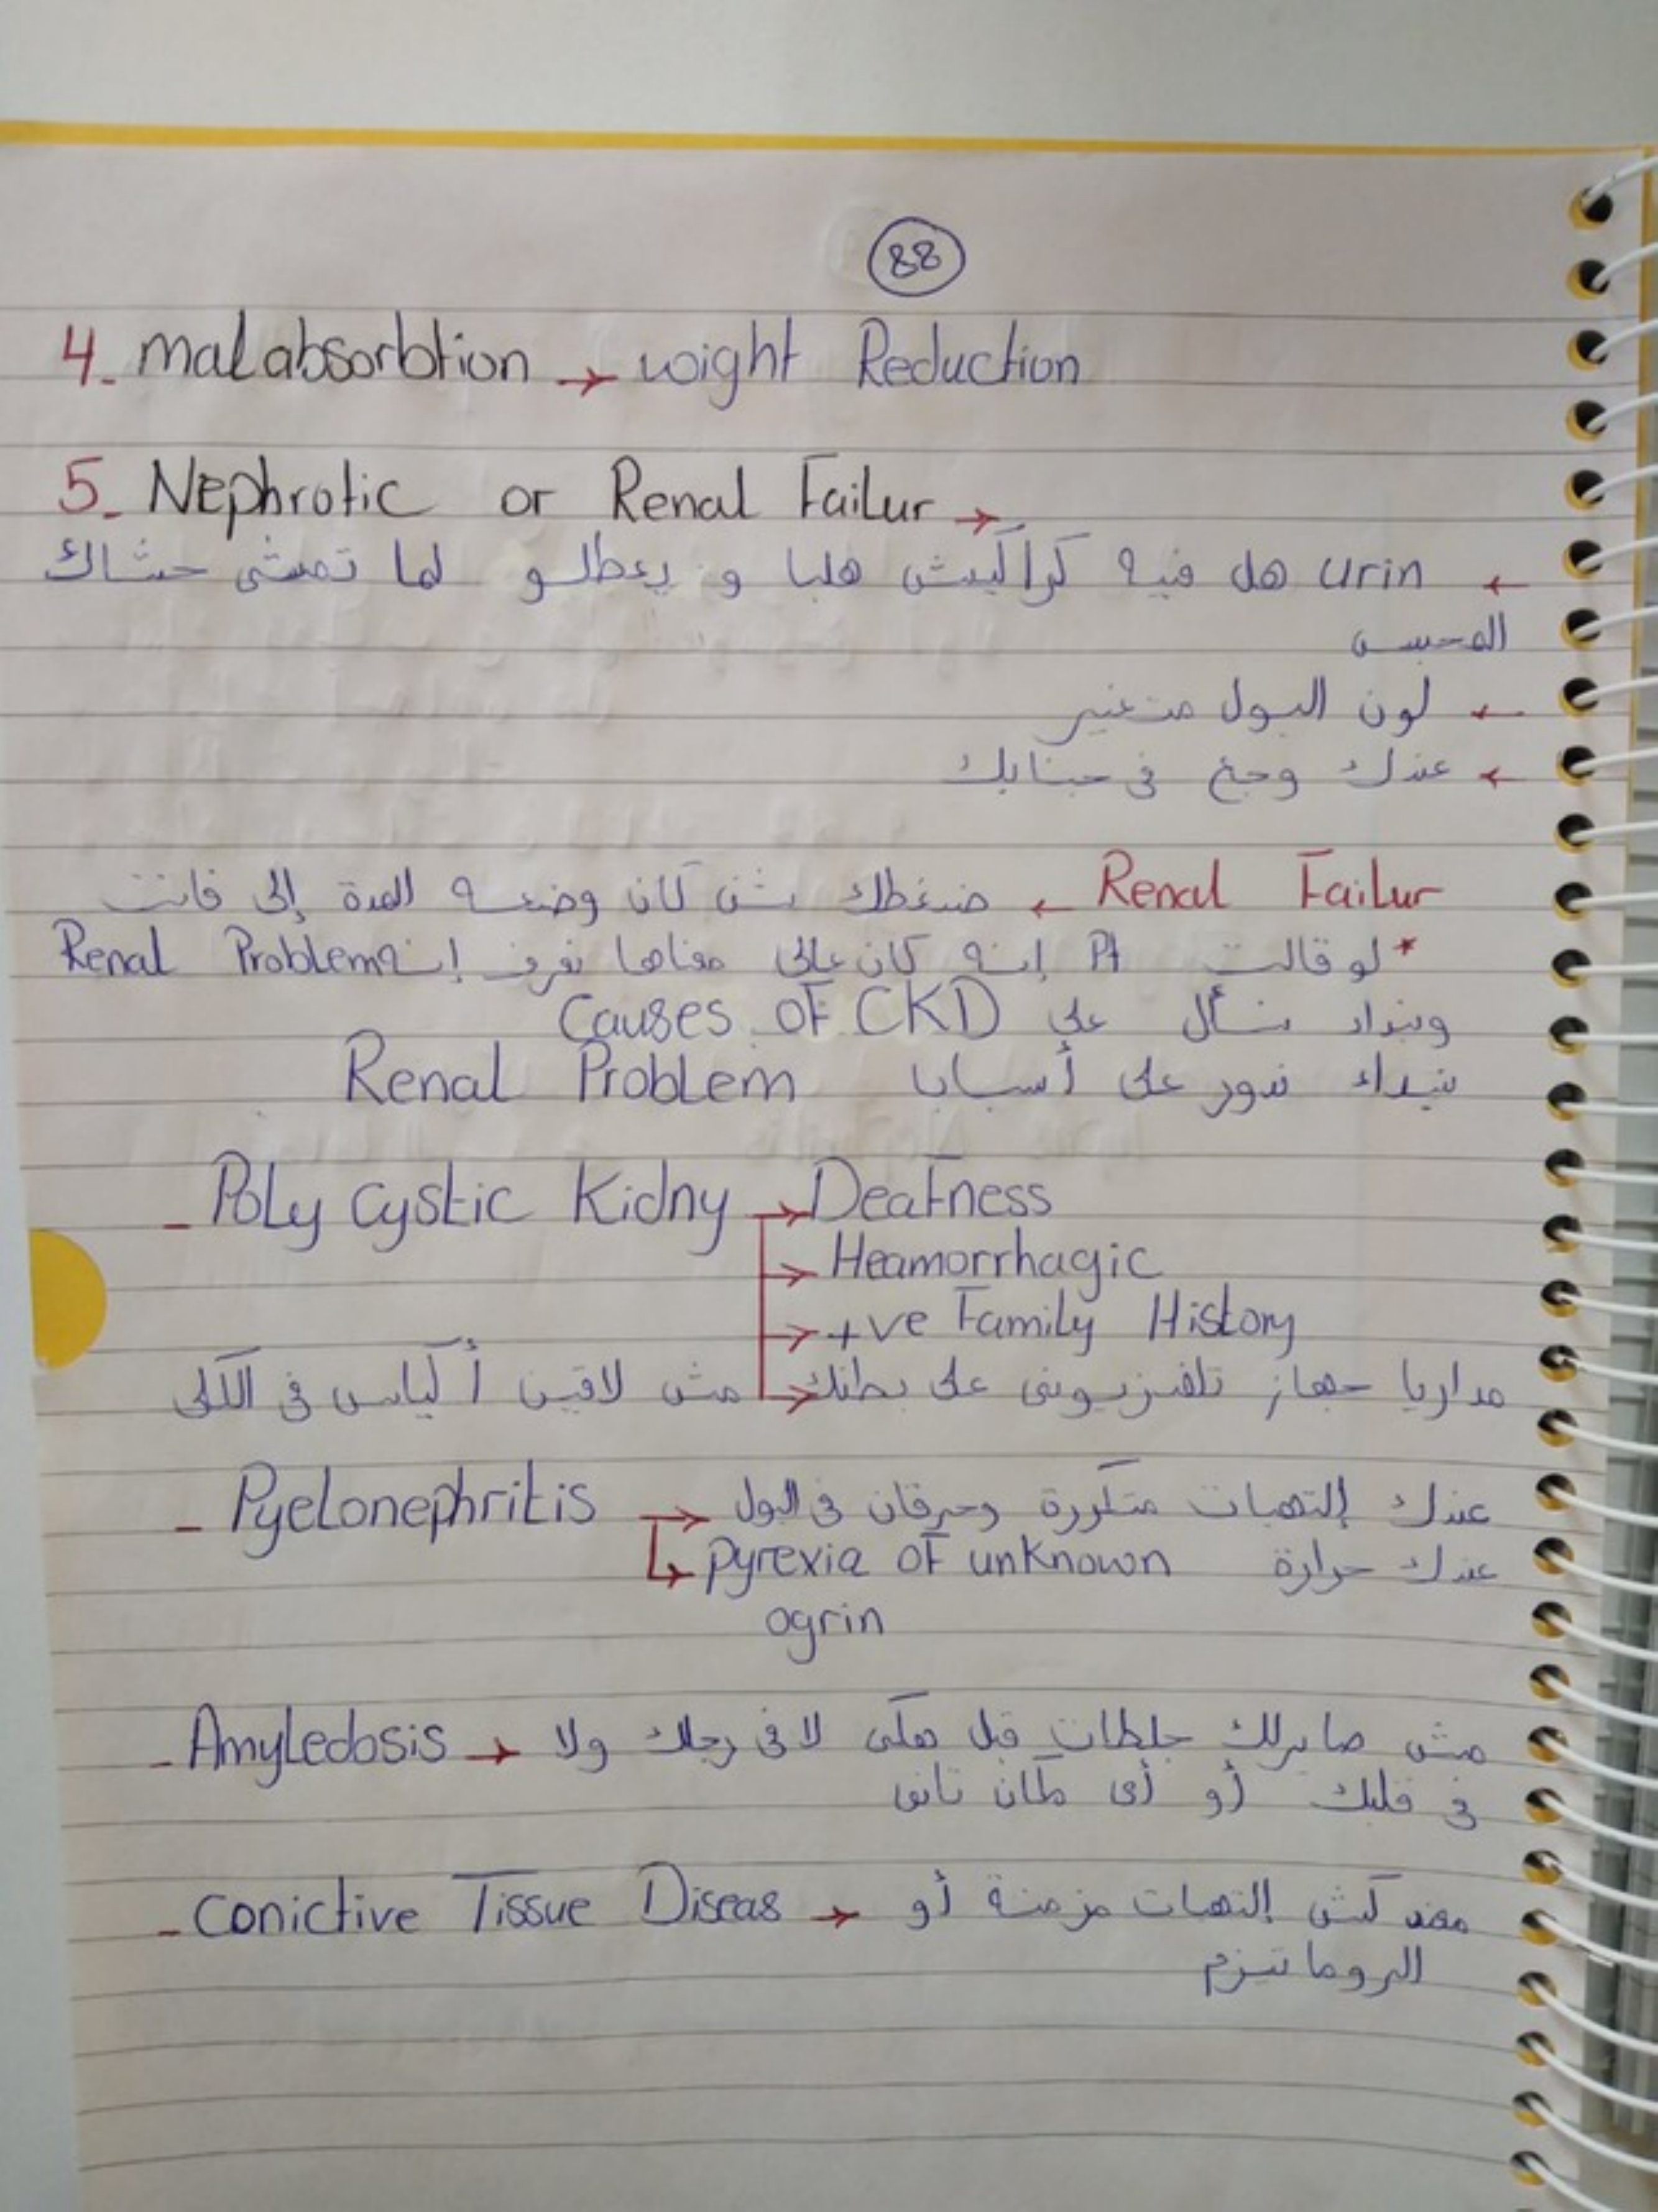 88
4- malabsorbtion → wight Reduction
5- Nephrotic or Renal Failur →
← urin هل فيه كراكيش هلبا و يعطلو لما تمشى حشاك
المحبس
← لون البول متغير
← عندك وجع في جنابك
Renal Failur ← ضغطك شن كان وضعه المدة إلى فاتت
* لو قالت Pt إنه كان عالي معناها نعرف إنه Renal Problem
ونبداء نسأل على Causes OF CKD
نبداء ندور على أسبابا Renal Problem
- Poly cystic Kidny → Deafness
→ Heamorrhagic
→ +ve Family History
→ مداريا جهاز تلفزيونى على بطنك مش لاقين أكياس في الكلى
- Pyelonephritis → عندك إلتهبات متكررة وحرقان في البول
↳ pyrexia OF unknown عندك حرارة
ogrin
- Amyledosis → مش صايرلك جلطات قبل هكى لا في رجلك ولا
في قلبك أو أي مكان تانى
- conictive Tissue Diseas → معندكش إلتهبات مزمنة أو
الروماتيزم